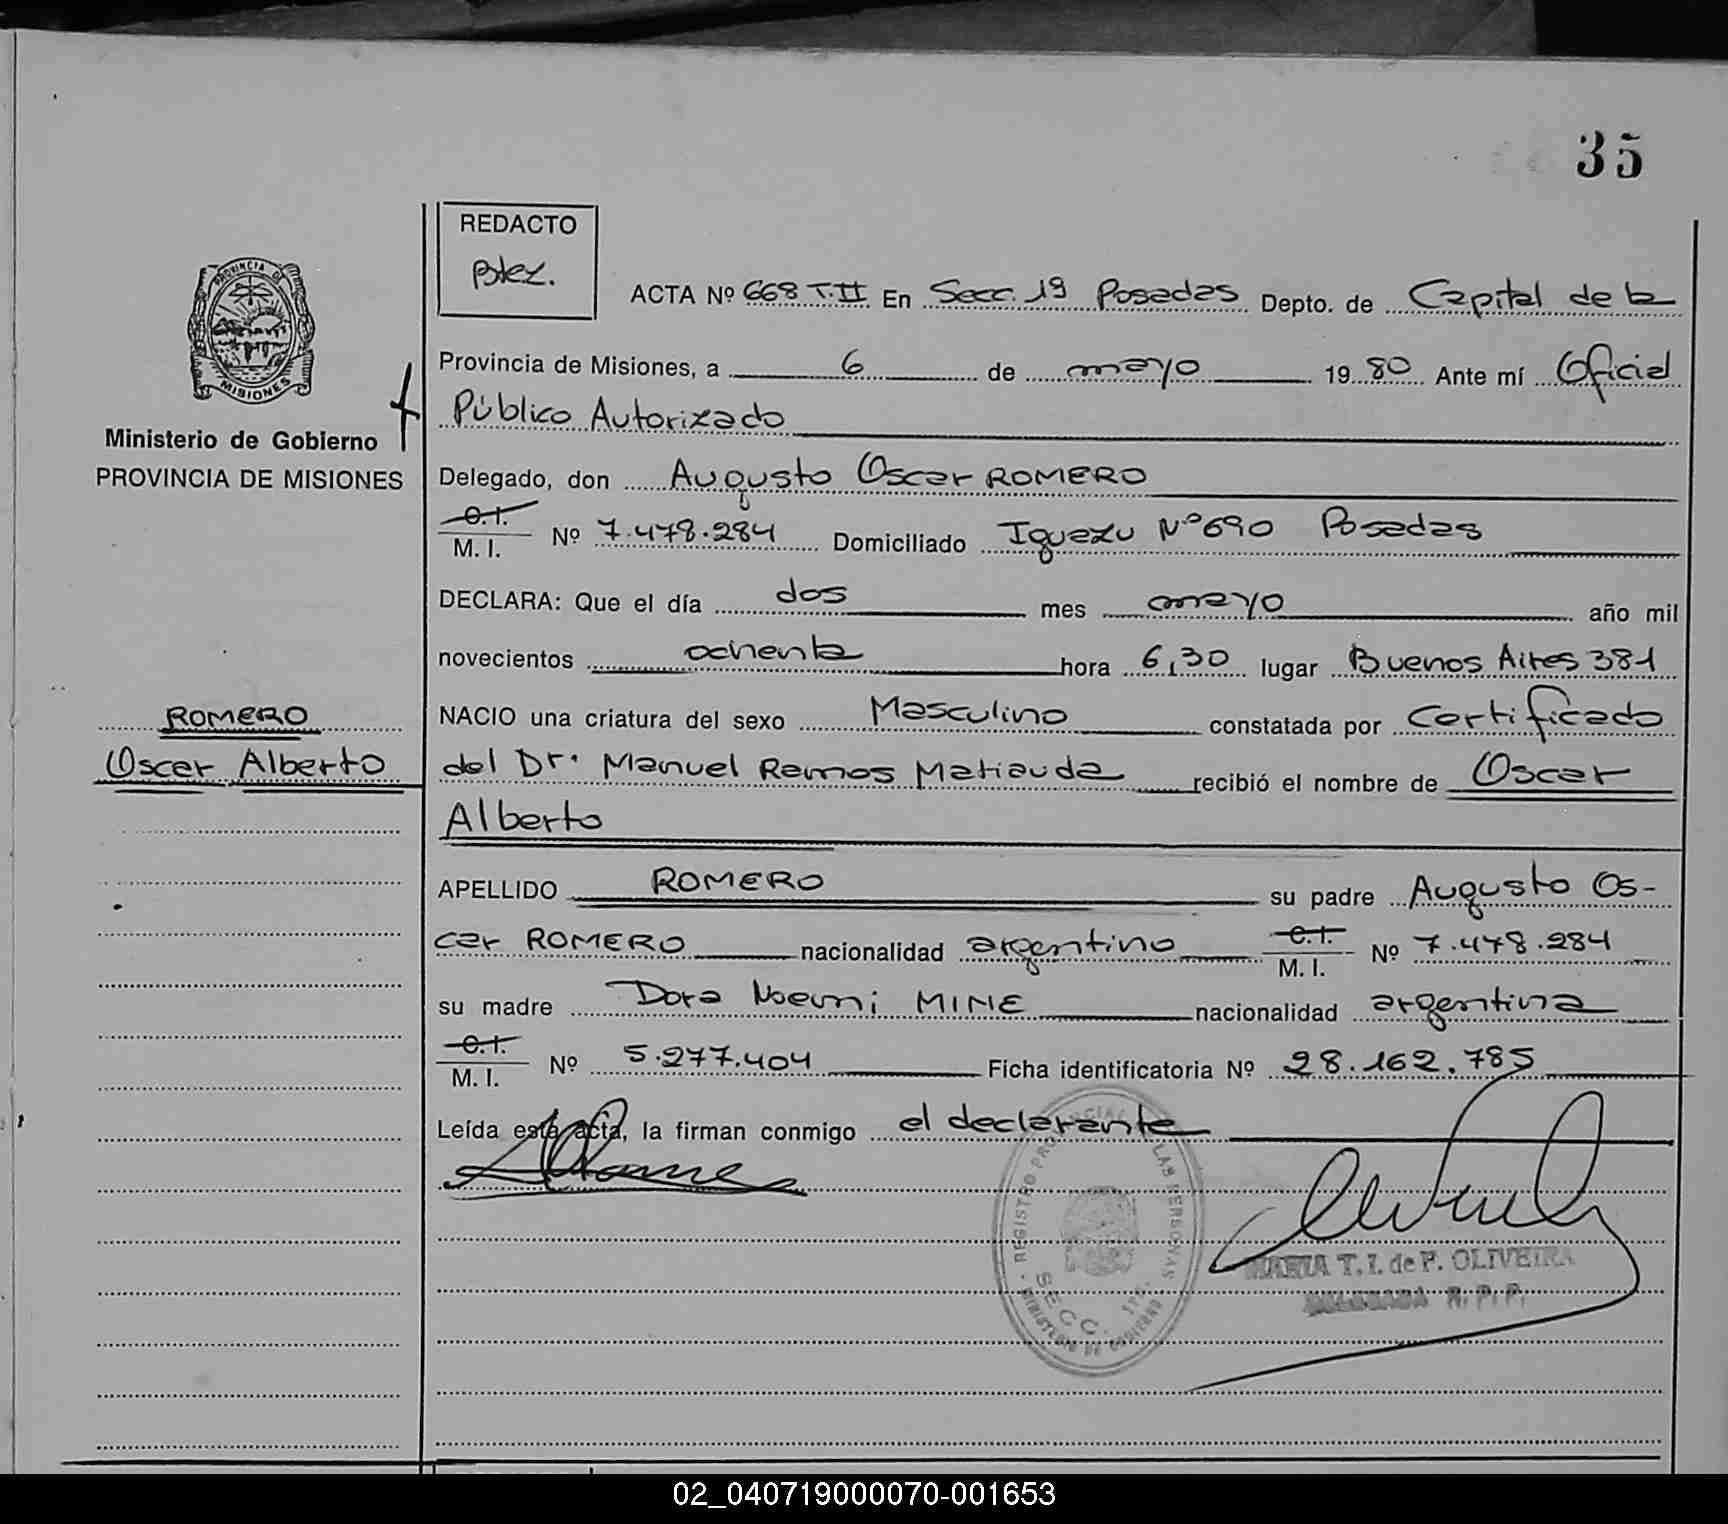 35
REDACTO
PROVINCIA DE
MISIONES
ACTA Nº 668 T.II En Secc. 1ª Posadas Depto. de Capital de la
Provincia de Misiones, a 6 de mayo 1980 Ante mí Oficial
Público Autorizado
Ministerio de Gobierno
PROVINCIA DE MISIONES
Delegado, don Augusto Oscar ROMERO
C.I.
M. I. Nº 7.478.284 Domiciliado Iguazu Nº 690 Posadas
DECLARA: Que el día dos mes mayo año mil
novecientos ochenta hora 6,30 lugar Buenos Aires 381
ROMERO
Oscar Alberto
NACIO una criatura del sexo Masculino constatada por Certificado
del Dr. Manuel Ramos Matiauda recibió el nombre de Oscar
Alberto
APELLIDO ROMERO su padre Augusto Os-
car ROMERO nacionalidad argentino C.I. M. I. Nº 7.478.284
su madre Dora Noemi MINE nacionalidad argentina
C.I.
M. I. Nº 5.277.404 Ficha identificatoria Nº 28.162.785
Leída esta acta, la firman conmigo el declarante
REGISTRO PROVINCIAL LAS PERSONAS
SECC. 1ra.
MINISTERIO DE GOBIERNO
MARIA T. I. de F. OLIVEIRA
DELEGADA R. P. P.
02_040719000070-001653